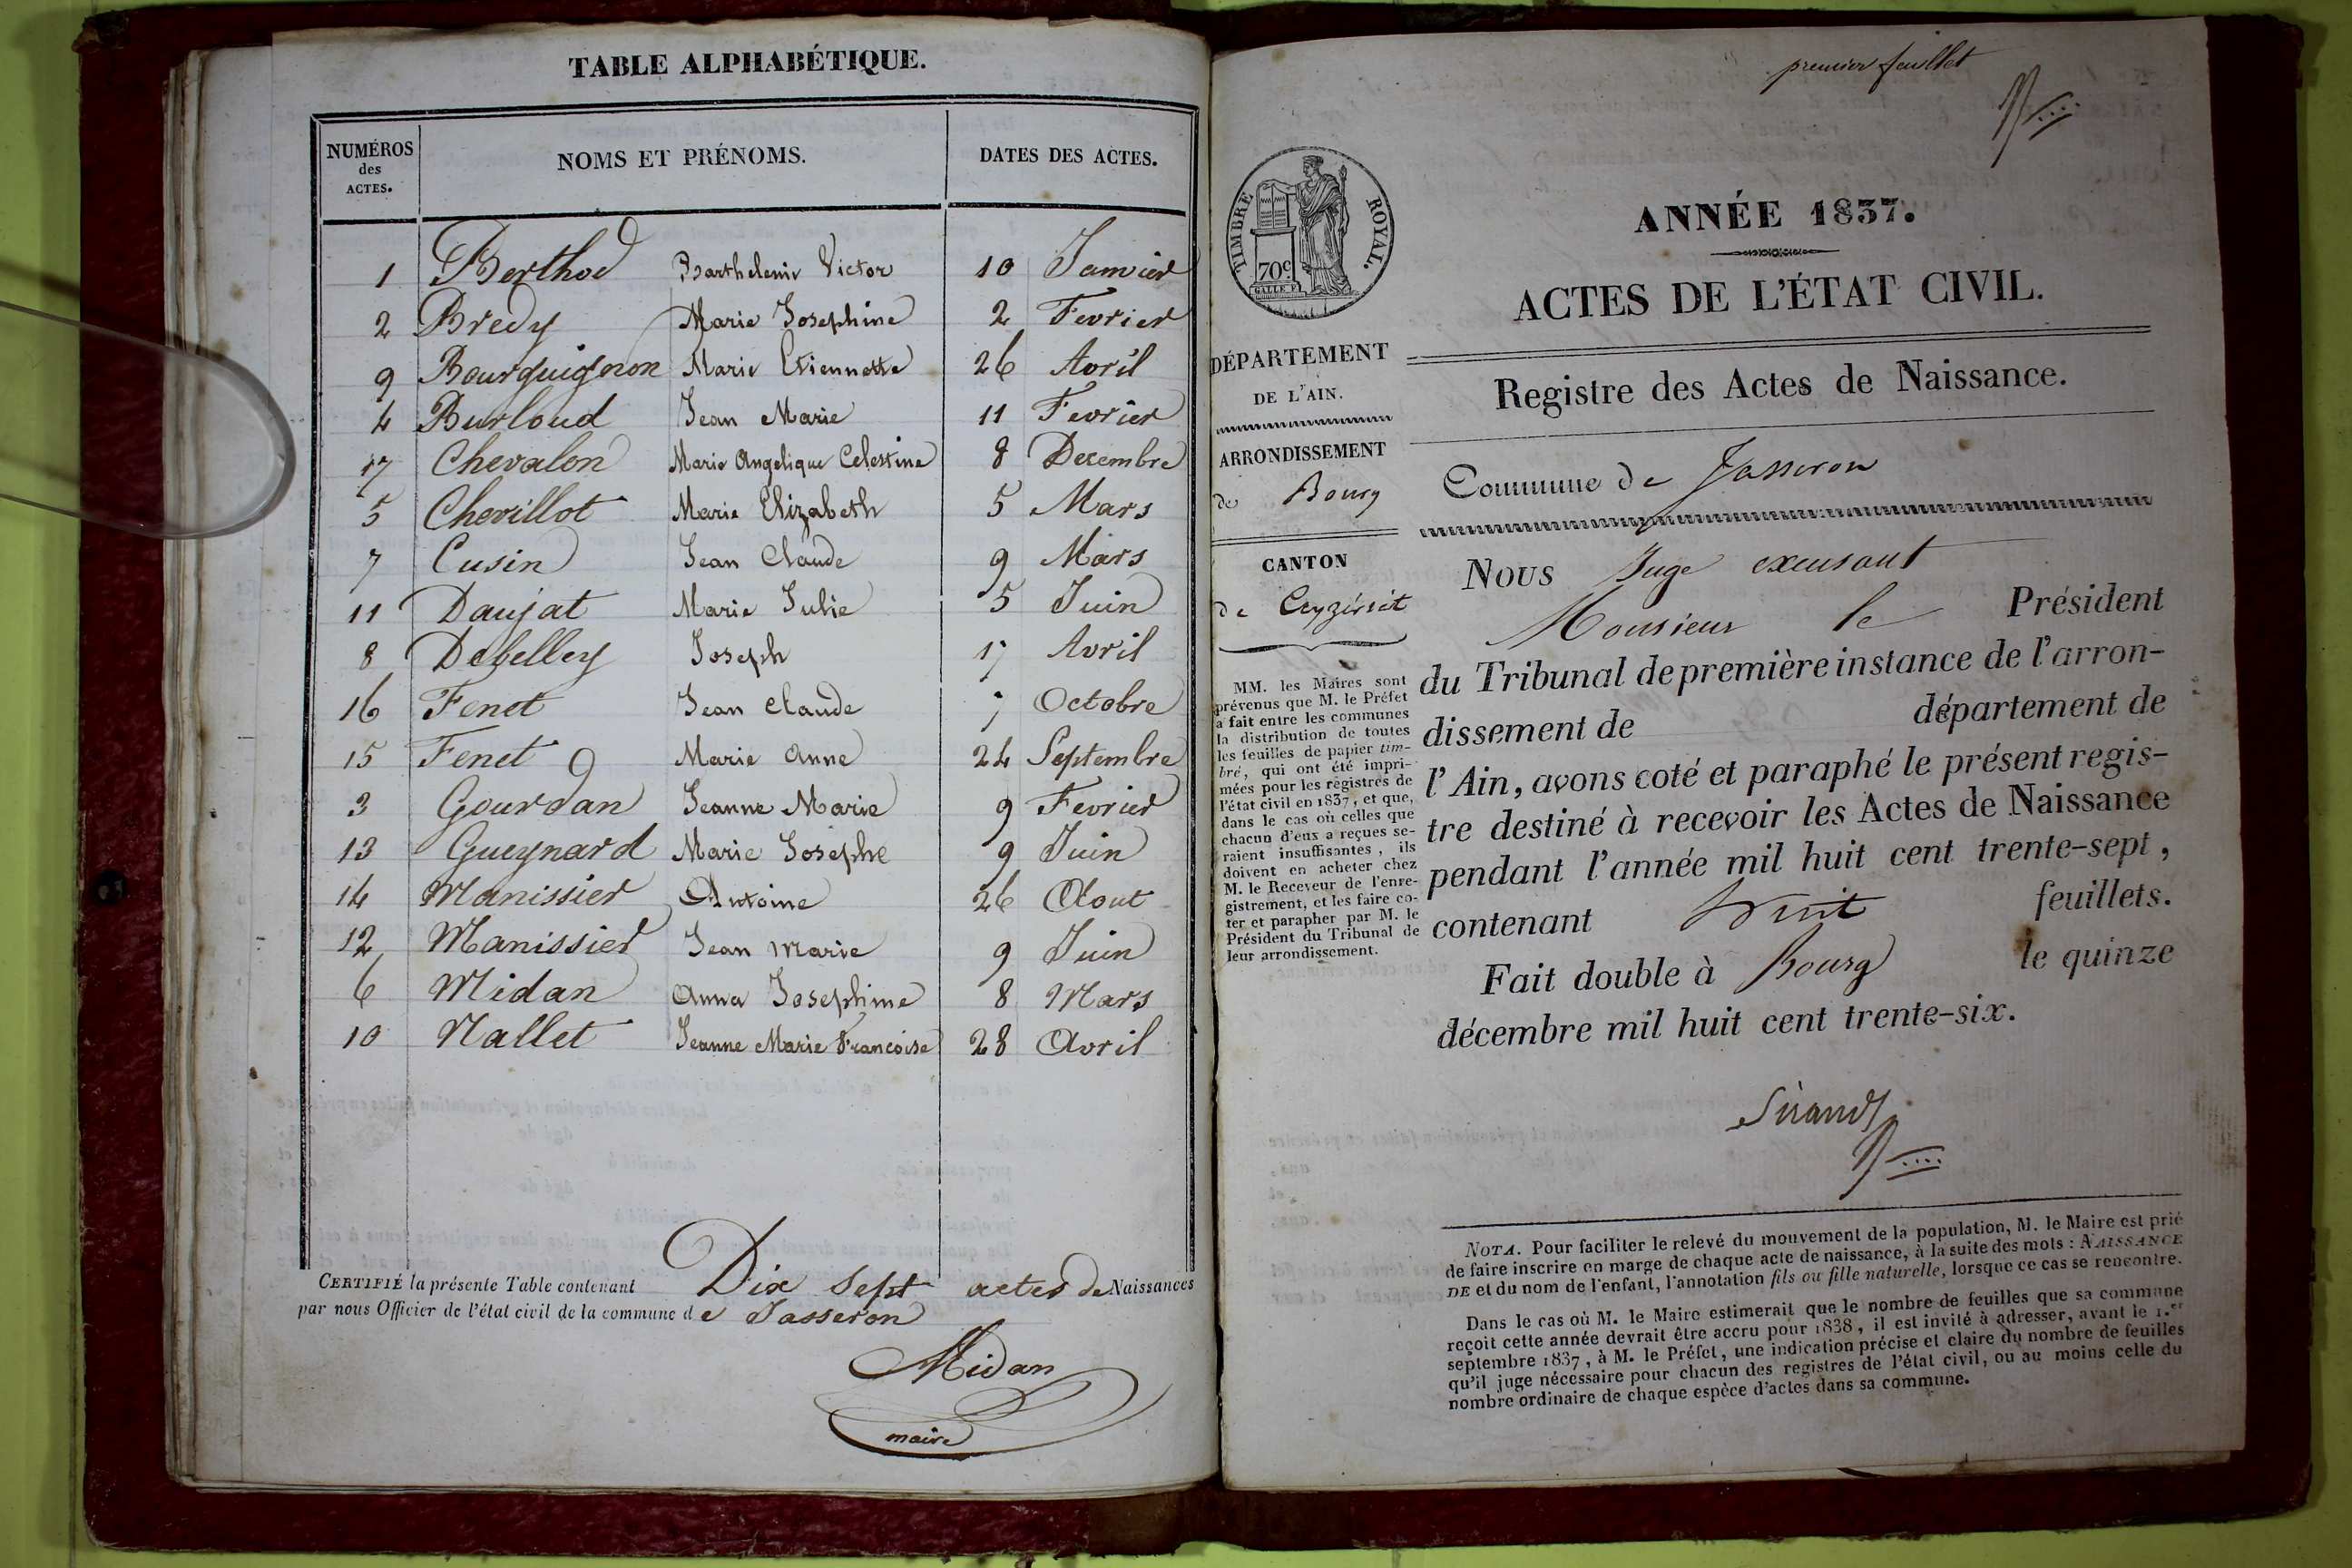 TABLE ALPHABÉTIQUE.
NUMÉROS des ACTES. NOMS ET PRÉNOMS. DATES DES ACTES.
1 Berthod Barthelemi Victor 10 Janvier
2 Bredy Marie Josephine 2 Fevrier
9 Bourguignon Marie Etiennette 26 Avril
4 Burloud Jean Marie 11 Fevrier
17 Chevalon Marie Angelique Celestine 8 Decembre
5 Chevillot Marie Elizabeth 5 Mars
7 Cusin Jean Claude 9 Mars
11 Daujat Marie Julie 5 Juin
8 Debelley Joseph 17 Avril
16 Fenet Jean Claude 7 Octobre
15 Fenet Marie Anne 24 Septembre
3 Gourdan Jeanne Marie 9 Fevrier
13 Gueynard Marie Josephe 9 Juin
14 Manissier Antoine 26 Aout
12 Manissier Jean Marie 9 Juin
6 Midan Anna Josephine 8 Mars
10 Nallet Jeanne Marie Francoise 28 Avril
CERTIFIÉ la présente Table contenant Dix Sept actes de Naissances
par nous Officier de l'état civil de la commune de Jasseron
Midan
maire
premier feuillet
TIMBRE ROYAL.
70c
GALLE F.
ANNÉE 1837.
ACTES DE L'ÉTAT CIVIL.
DÉPARTEMENT
DE L'AIN.
ARRONDISSEMENT
de Bourg
CANTON
de Ceyzériat
MM. les Maires sont
prévenus que M. le Préfet
a fait entre les communes
la distribution de toutes
les feuilles de papier tim-
bré, qui ont été impri-
mées pour les registres de
l'état civil en 1837, et que,
dans le cas où celles que
chacun d'eux a reçues se-
raient insuffisantes, ils
doivent en acheter chez
M. le Receveur de l'enre-
gistrement, et les faire co-
ter et parapher par M. le
Président du Tribunal de
leur arrondissement.
Registre des Actes de Naissance.
Commune de Jasseron
Nous Juge excusant
Monsieur le Président
du Tribunal de première instance de l'arron-
dissement de département de
l'Ain, avons coté et paraphé le présent regis-
tre destiné à recevoir les Actes de Naissance
pendant l'année mil huit cent trente-sept,
contenant huit feuillets.
Fait double à Bourg le quinze
décembre mil huit cent trente-six.
Sirand
NOTA. Pour faciliter le relevé du mouvement de la population, M. le Maire est prié
de faire inscrire en marge de chaque acte de naissance, à la suite des mots : NAISSANCE
DE et du nom de l'enfant, l'annotation fils ou fille naturelle, lorsque ce cas se rencontre.
Dans le cas où M. le Maire estimerait que le nombre de feuilles que sa commune
reçoit cette année devrait être accru pour 1838, il est invité à adresser, avant le 1.er
septembre 1837, à M. le Préfet, une indication précise et claire du nombre de feuilles
qu'il juge nécessaire pour chacun des registres de l'état civil, ou au moins celle du
nombre ordinaire de chaque espèce d'actes dans sa commune.